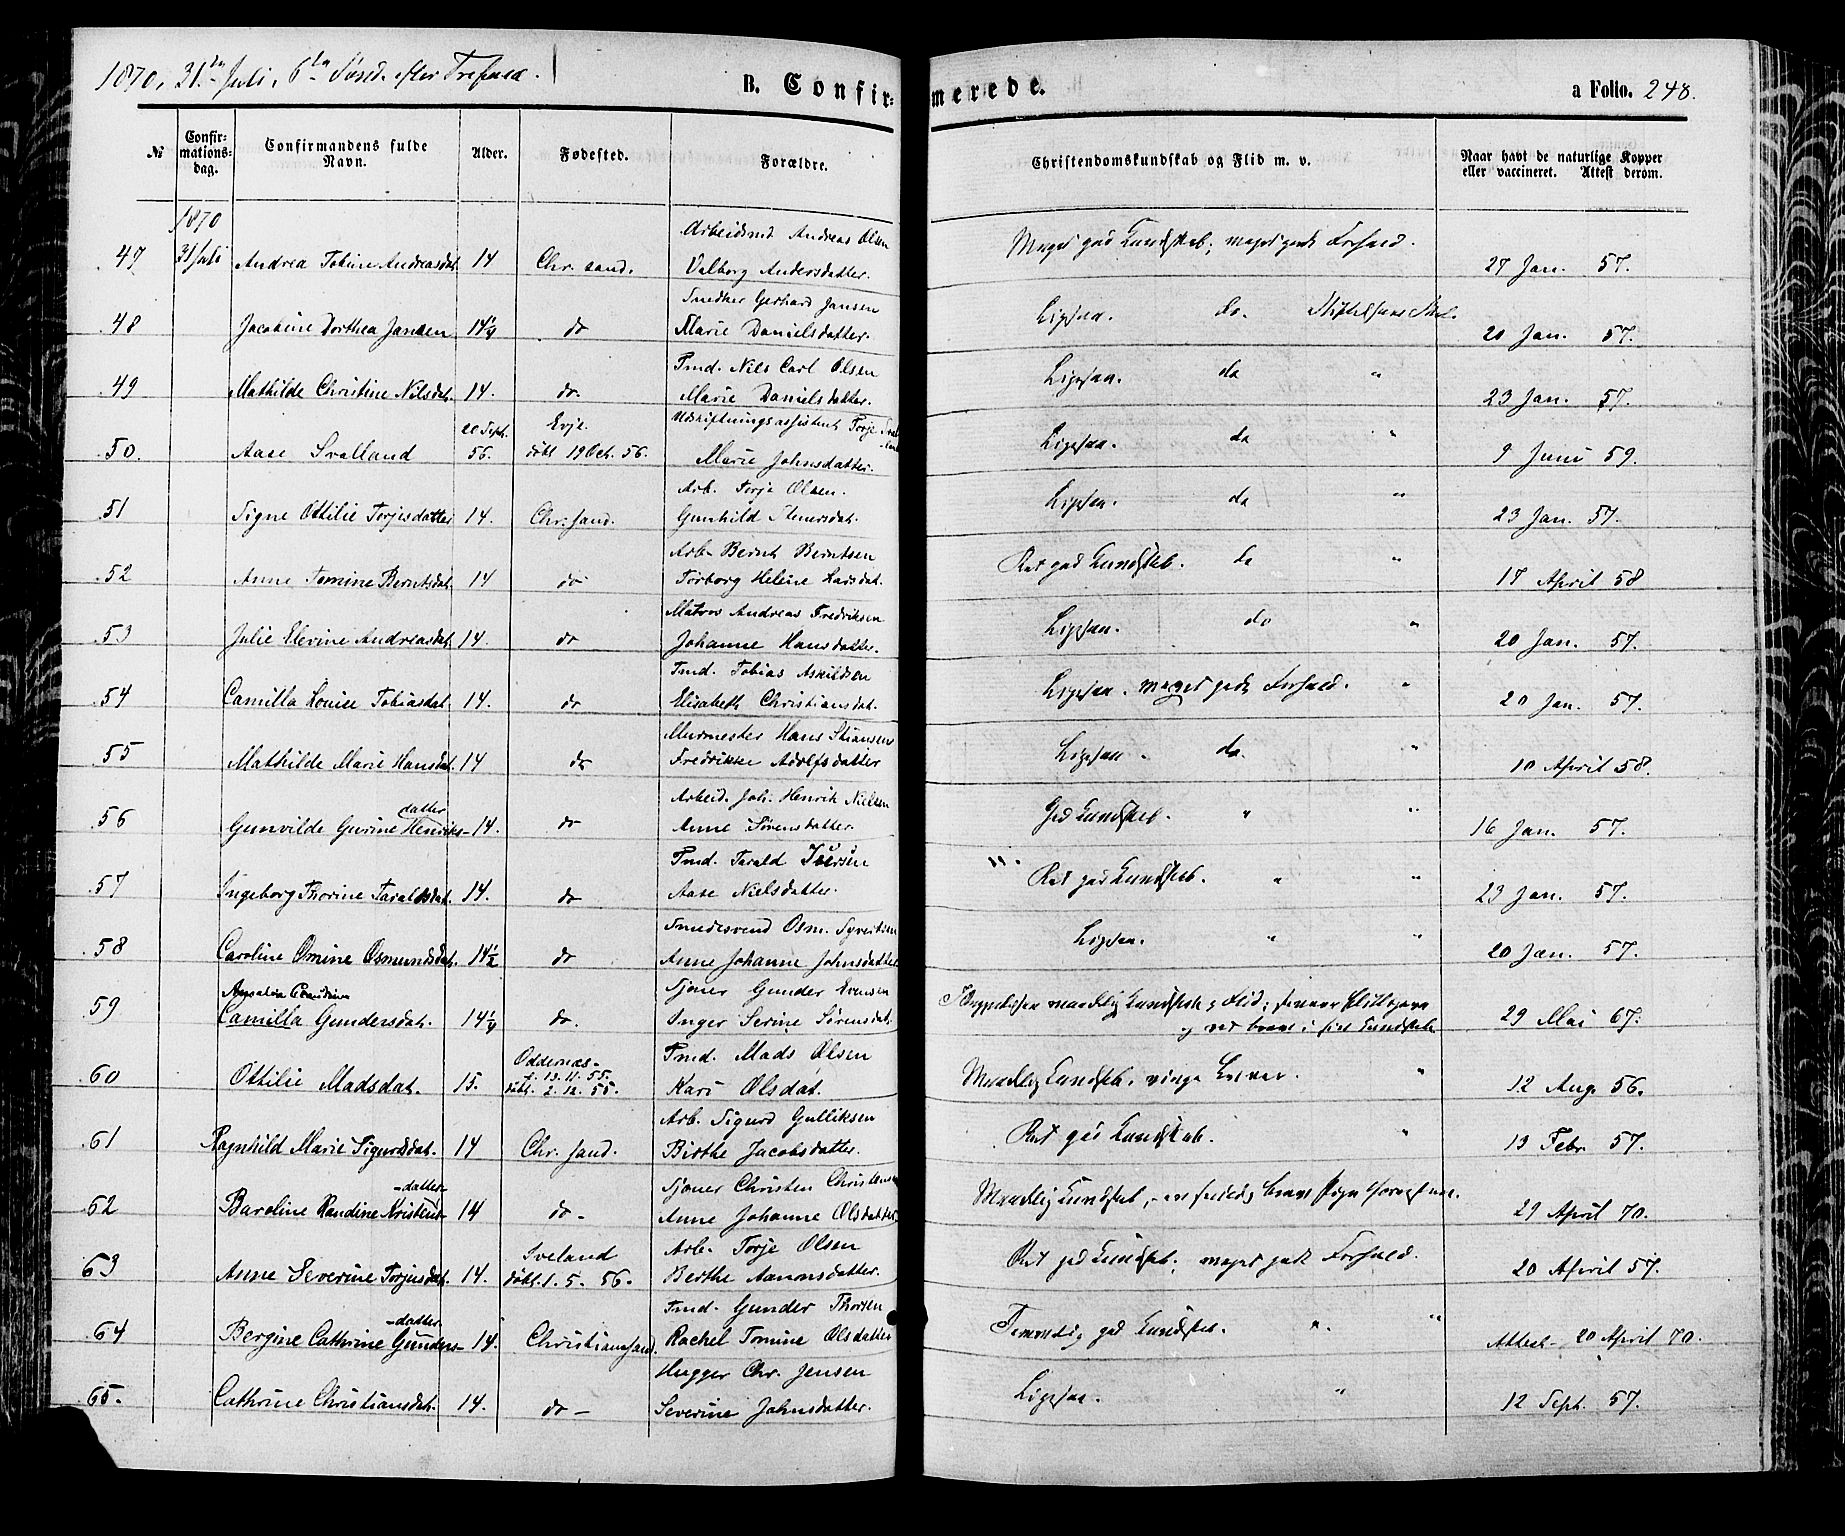 1870, 31te Juli, 6te Sønd. efter Trefold.
B. Confirmerede.
a Folio. 248.
№
Confirmationsdag.
Confirmandens fulde Navn.
Alder.
Fødested.
Forældre.
Christendomskundskab og Flid m. v.
Naar havt de naturlige Kopper eller vaccineret. Attest derom.
1870
Arbeidsmd Andreas Olsen
47 31 Juli Andrea Tobine Andreasdat. 14 Chr. sand. Valborg Andersdatter. Meget god Kundskab; meget godt Forhold. 27 Jan. 57.
Snedker Gerhard Jansen
48 Jacobine Dorthea Jansen 14¼ do Marie Danielsdatter. Ligesaa. do. 20 Jan. 57.
Tmd. Nils Carl Olsen
49 Mathilde Christine Nilsdat. 14. do. Marie Danielsdatter. Ligesaa. do " 23 Jan. 57.
20 Sept. Evje. Udskiftningsassistent Torje Svalland
50. Aase Svalland 56. døbt 19 Oct. 56. Marie Johnsdatter. Ligesaa. do " 9 Juni 59.
Arb. Torje Olsen.
51 Signe Ottilie Torjesdatter 14. Chr. sand. Gunhild Stenersdat. Ligesaa. do " 23 Jan. 57.
Arb. Bernt Berntsen
52 Anne Tomine Berntsdat. 14 do Torborg Helene Larsdat. Ret god Kundskab. do " 17 April 58
Matros Andreas Fredriksen
53 Julie Elevine Andreasdat. 14. do Johanne Hansdatter. Ligesaa. do " 20 Jan. 57.
Tmd. Tobias Askildsen
54 Camilla Louise Tobiasdat. 14. do Elisabeth Christiansdat. Ligesaa. meget godt Forhold. " 20 Jan. 57.
Murmester Hans Stiansen
55 Mathilde Marie Hansdat. 14 do Fredrikke Adolfsdatter Ligesaa. do. " 10 April 58.
Arbeid. Joh. Henrik Nielsen
56 Gunvilde Gurine Henriksdatter 14. do Anne Sørensdatter. God Kundskab. " " 16 Jan. 57.
Tmd. Tarald Iversen
57 Ingeborg Thorine Taraldsdat. 14. do Aase Nielsdatter. Ret god Kundskab. " " 23 Jan. 57.
Smedesvend Osm. Syvertsen
58 Caroline Omine Osmundsdat. 14½ do Anne Johanne Johnsdatter Ligesaa. " " 20 Jan. 57.
Sjøner Gunder Evensen
59 Camilla Gundersdat. 14¼ do. Inger Serine Sørensdat. 29 Mai 67.
Oddernæs Tmd. Mads Olsen
f. 13.11.55.
60 Ottilie Madsdat. 15. døbt. 2.12.55. Kari Olsdat. Maadelig Kundskab, ringe " 12 Aug. 56.
Arb. Sigurd Gulliksen
61 Ragnhild Marie Sigurdsdat. 14 Chr. sand. Birthe Jacobsdatter. Ret god Kundskab. " 13 Febr. 57.
Sjøner Christen Christensen
62 Baroline Randine Kristensdatter 14 do - Anne Johanne Olsdatter Maadelig Kundskab, 29 April 70.
Sveland Arb. Torje Olsen
63 Anne Severine Torjusdat. 14. døbt. 1. 5. 56. Berthe Aanonsdatter. Ret god Kundskab; meget godt Forhold. 20 April 57.
Tmd. Gunder Thorsen
64 Bergine Cathrine Gundersdatter 14. Christianssand. Rachel Tomine Olsdatter Temmelig god Kundskab. " " Attest 20 April 70.
Hugger Chr. Jensen
65. Cathrine Christiansdat. 14. do - Severine Johnsdatter. Ligesaa. " 12 Sept. 57.